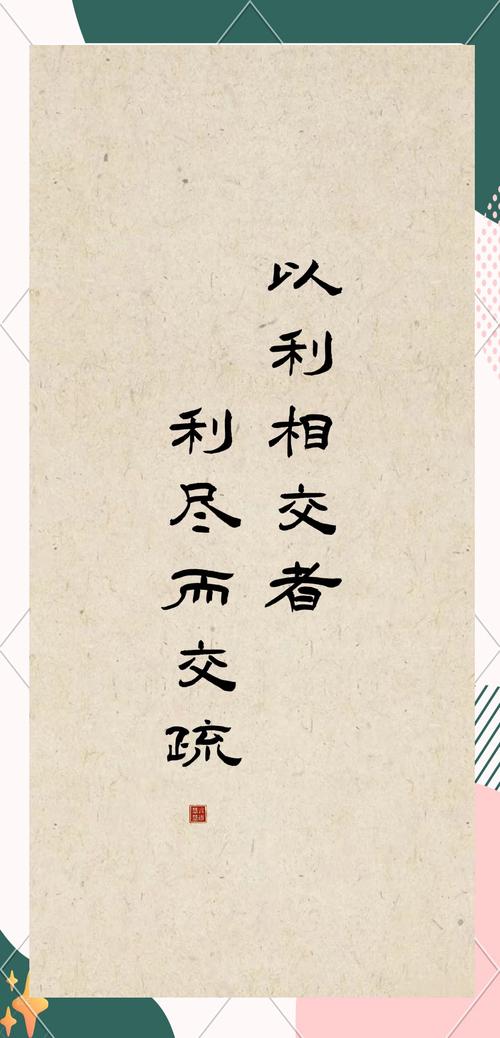 以利相交者
利尽而交疏